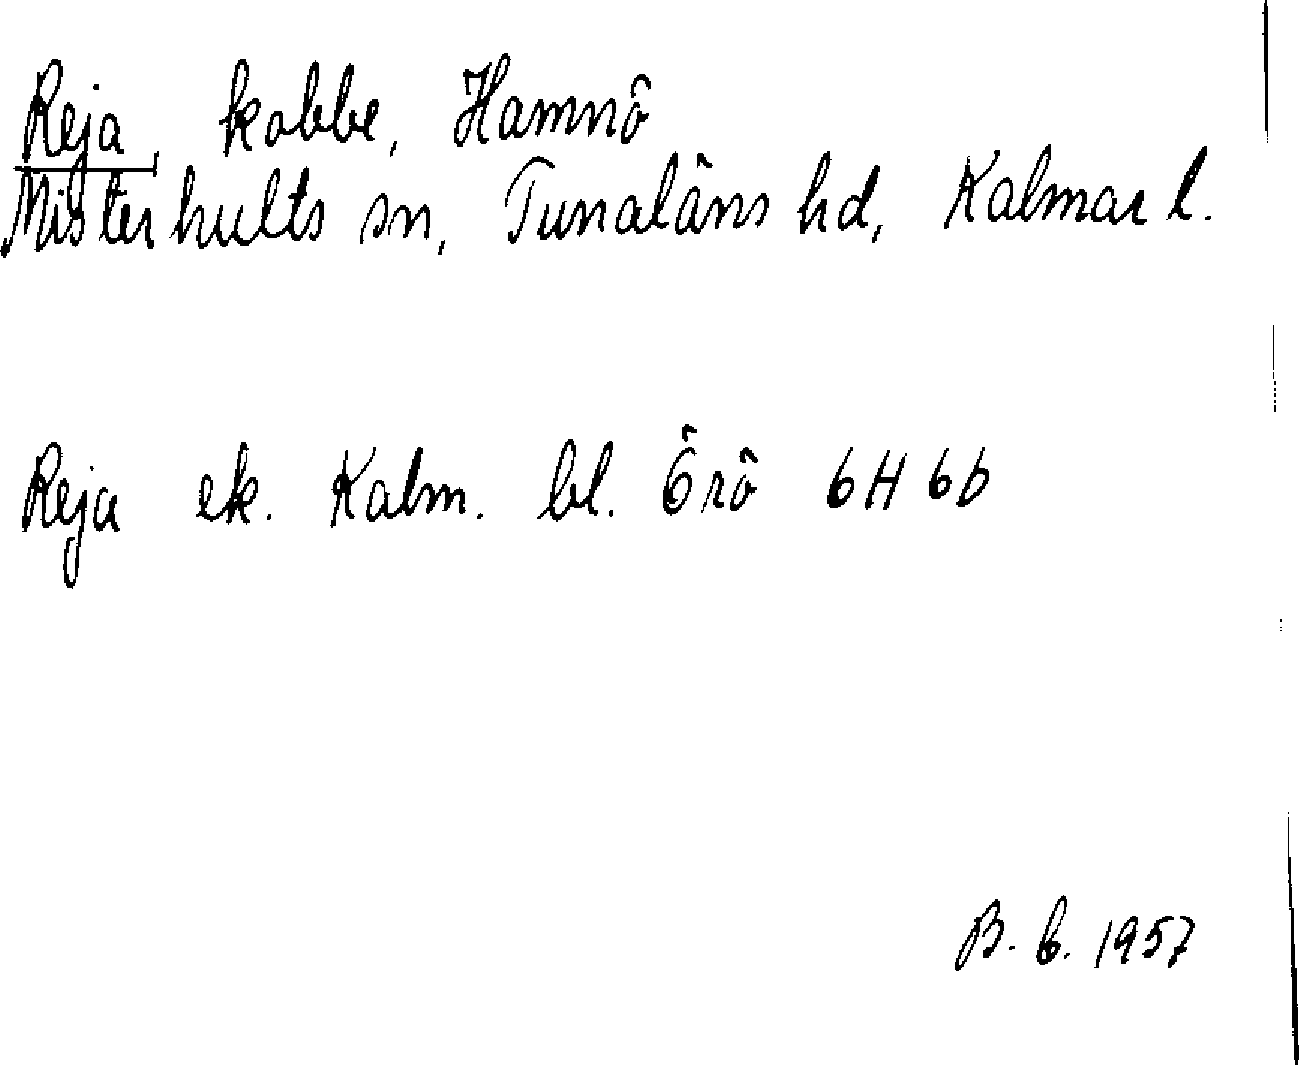 Reja, kobbe, Hamnö
Misterhults sn, Tunaläns hd, Kalmar l.
Reja ek. Kalm. bl. Örö 6H 6b
B. b. 1957